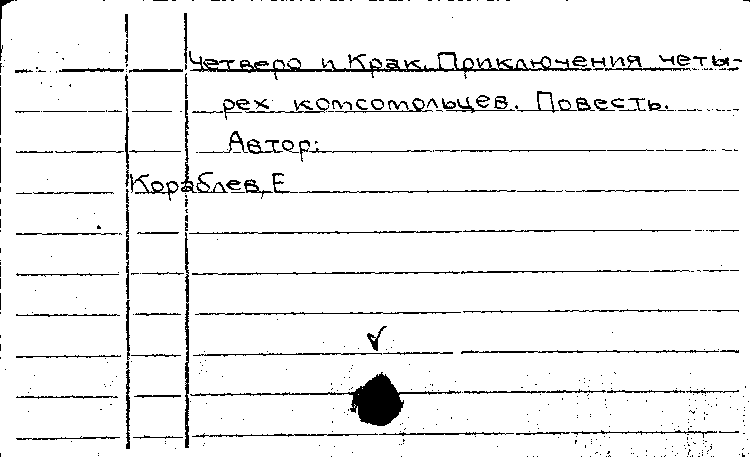 Четверо и Крак. Приключения четы-
рех комсомольцев. Повесть.
Автор:
Кораблев, Е